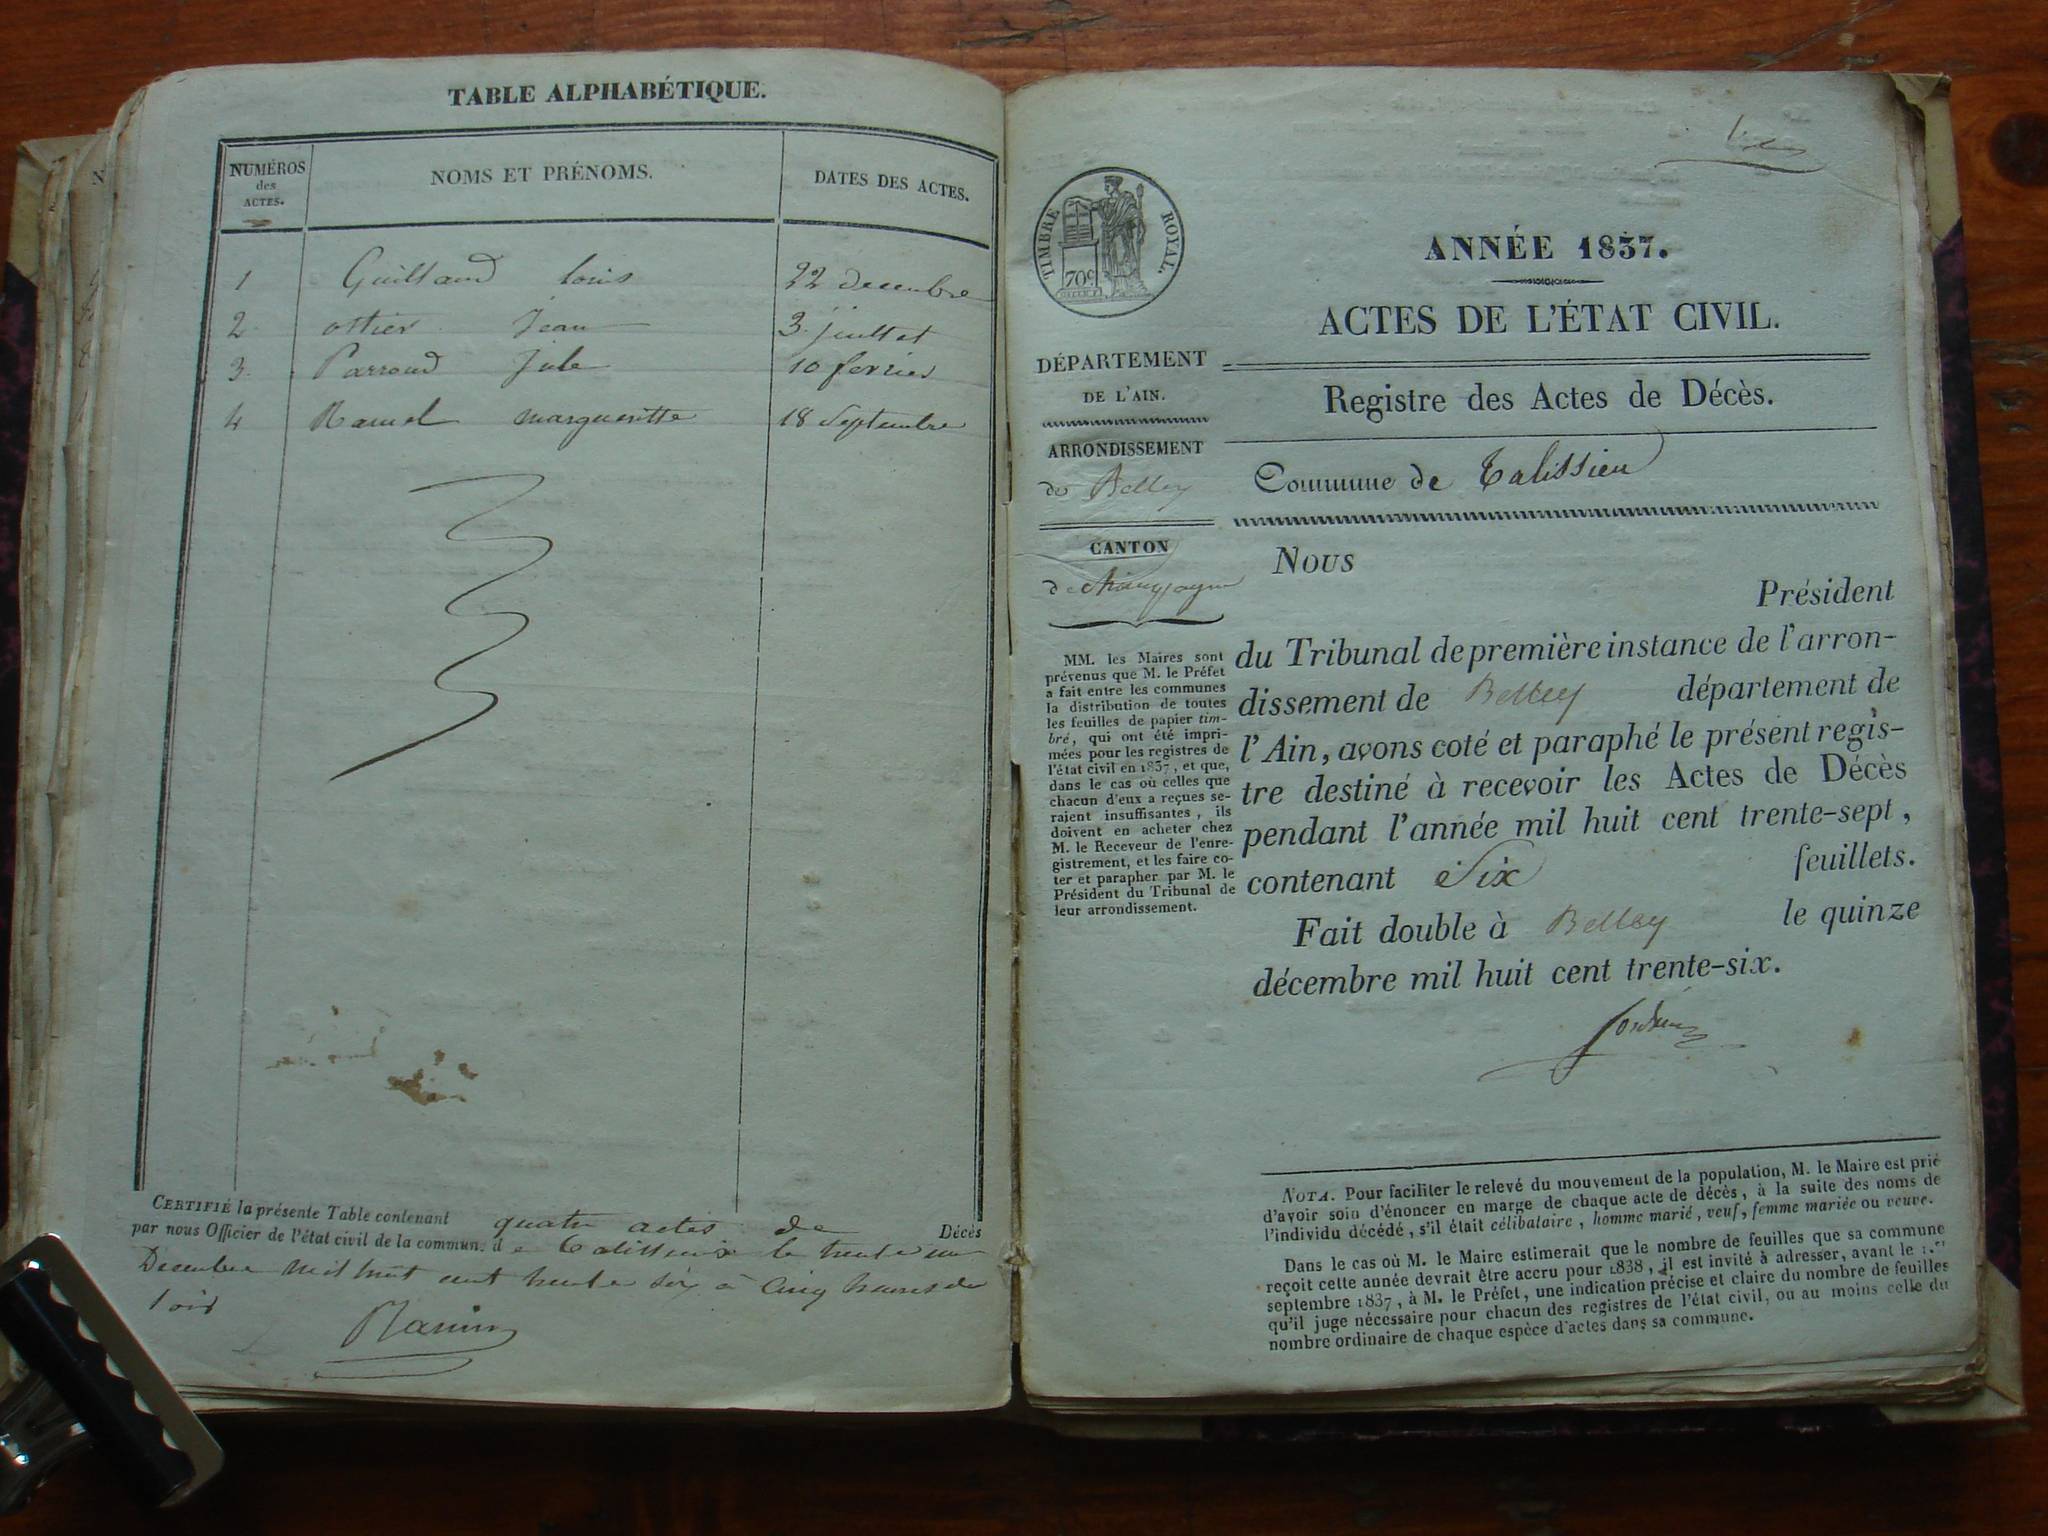 TABLE ALPHABÉTIQUE.
NUMÉROS des ACTES.
NOMS ET PRÉNOMS.
DATES DES ACTES.
1 Guilland louis 22 decembre
2 ottier Jean 3 juillet
3. Parroud Jule 10 fevrier
4 Ramel margueritte 18 Septembre
CERTIFIÉ la présente Table contenant quatre actes de Décès
par nous Officier de l'état civil de la commun. d e Talissieux le trente un
Decembre mil huit cent trente six a Cinq heures du
soir
TIMBRE ROYAL.
70c
ANNÉE 1837.
ACTES DE L'ÉTAT CIVIL.
Registre des Actes de Décès.
Commune de Talissieu
DÉPARTEMENT
DE L'AIN.
ARRONDISSEMENT
de Belley
CANTON
de Champagne
MM. les Maires sont
prévenus que M. le Préfet
a fait entre les communes
la distribution de toutes
les feuilles de papier tim-
bré, qui ont été impri-
mées pour les registres de
l'état civil en 1837, et que,
dans le cas où celles que
chacun d'eux a reçues se-
raient insuffisantes, ils
doivent en acheter chez
M. le Receveur de l'enre-
gistrement, et les faire co-
ter et parapher par M. le
Président du Tribunal de
leur arrondissement.
Nous
Président
du Tribunal de première instance de l'arron-
dissement de Belley département de
l'Ain, avons coté et paraphé le présent regis-
tre destiné à recevoir les Actes de Décès
pendant l'année mil huit cent trente-sept,
contenant Six feuillets.
Fait double à Belley le quinze
décembre mil huit cent trente-six.
NOTA. Pour faciliter le relevé du mouvement de la population, M. le Maire est prié
d'avoir soin d'énoncer en marge de chaque acte de décès, à la suite des noms de
l'individu décédé, s'il était célibataire, homme marié, veuf, femme mariée ou veuve.
Dans le cas où M. le Maire estimerait que le nombre de feuilles que sa commune
reçoit cette année devrait être accru pour 1838, il est invité à adresser, avant le 1.er
septembre 1837, à M. le Préfet, une indication précise et claire du nombre de feuilles
qu'il juge nécessaire pour chacun des registres de l'état civil, ou au moins celle du
nombre ordinaire de chaque espèce d'actes dans sa commune.